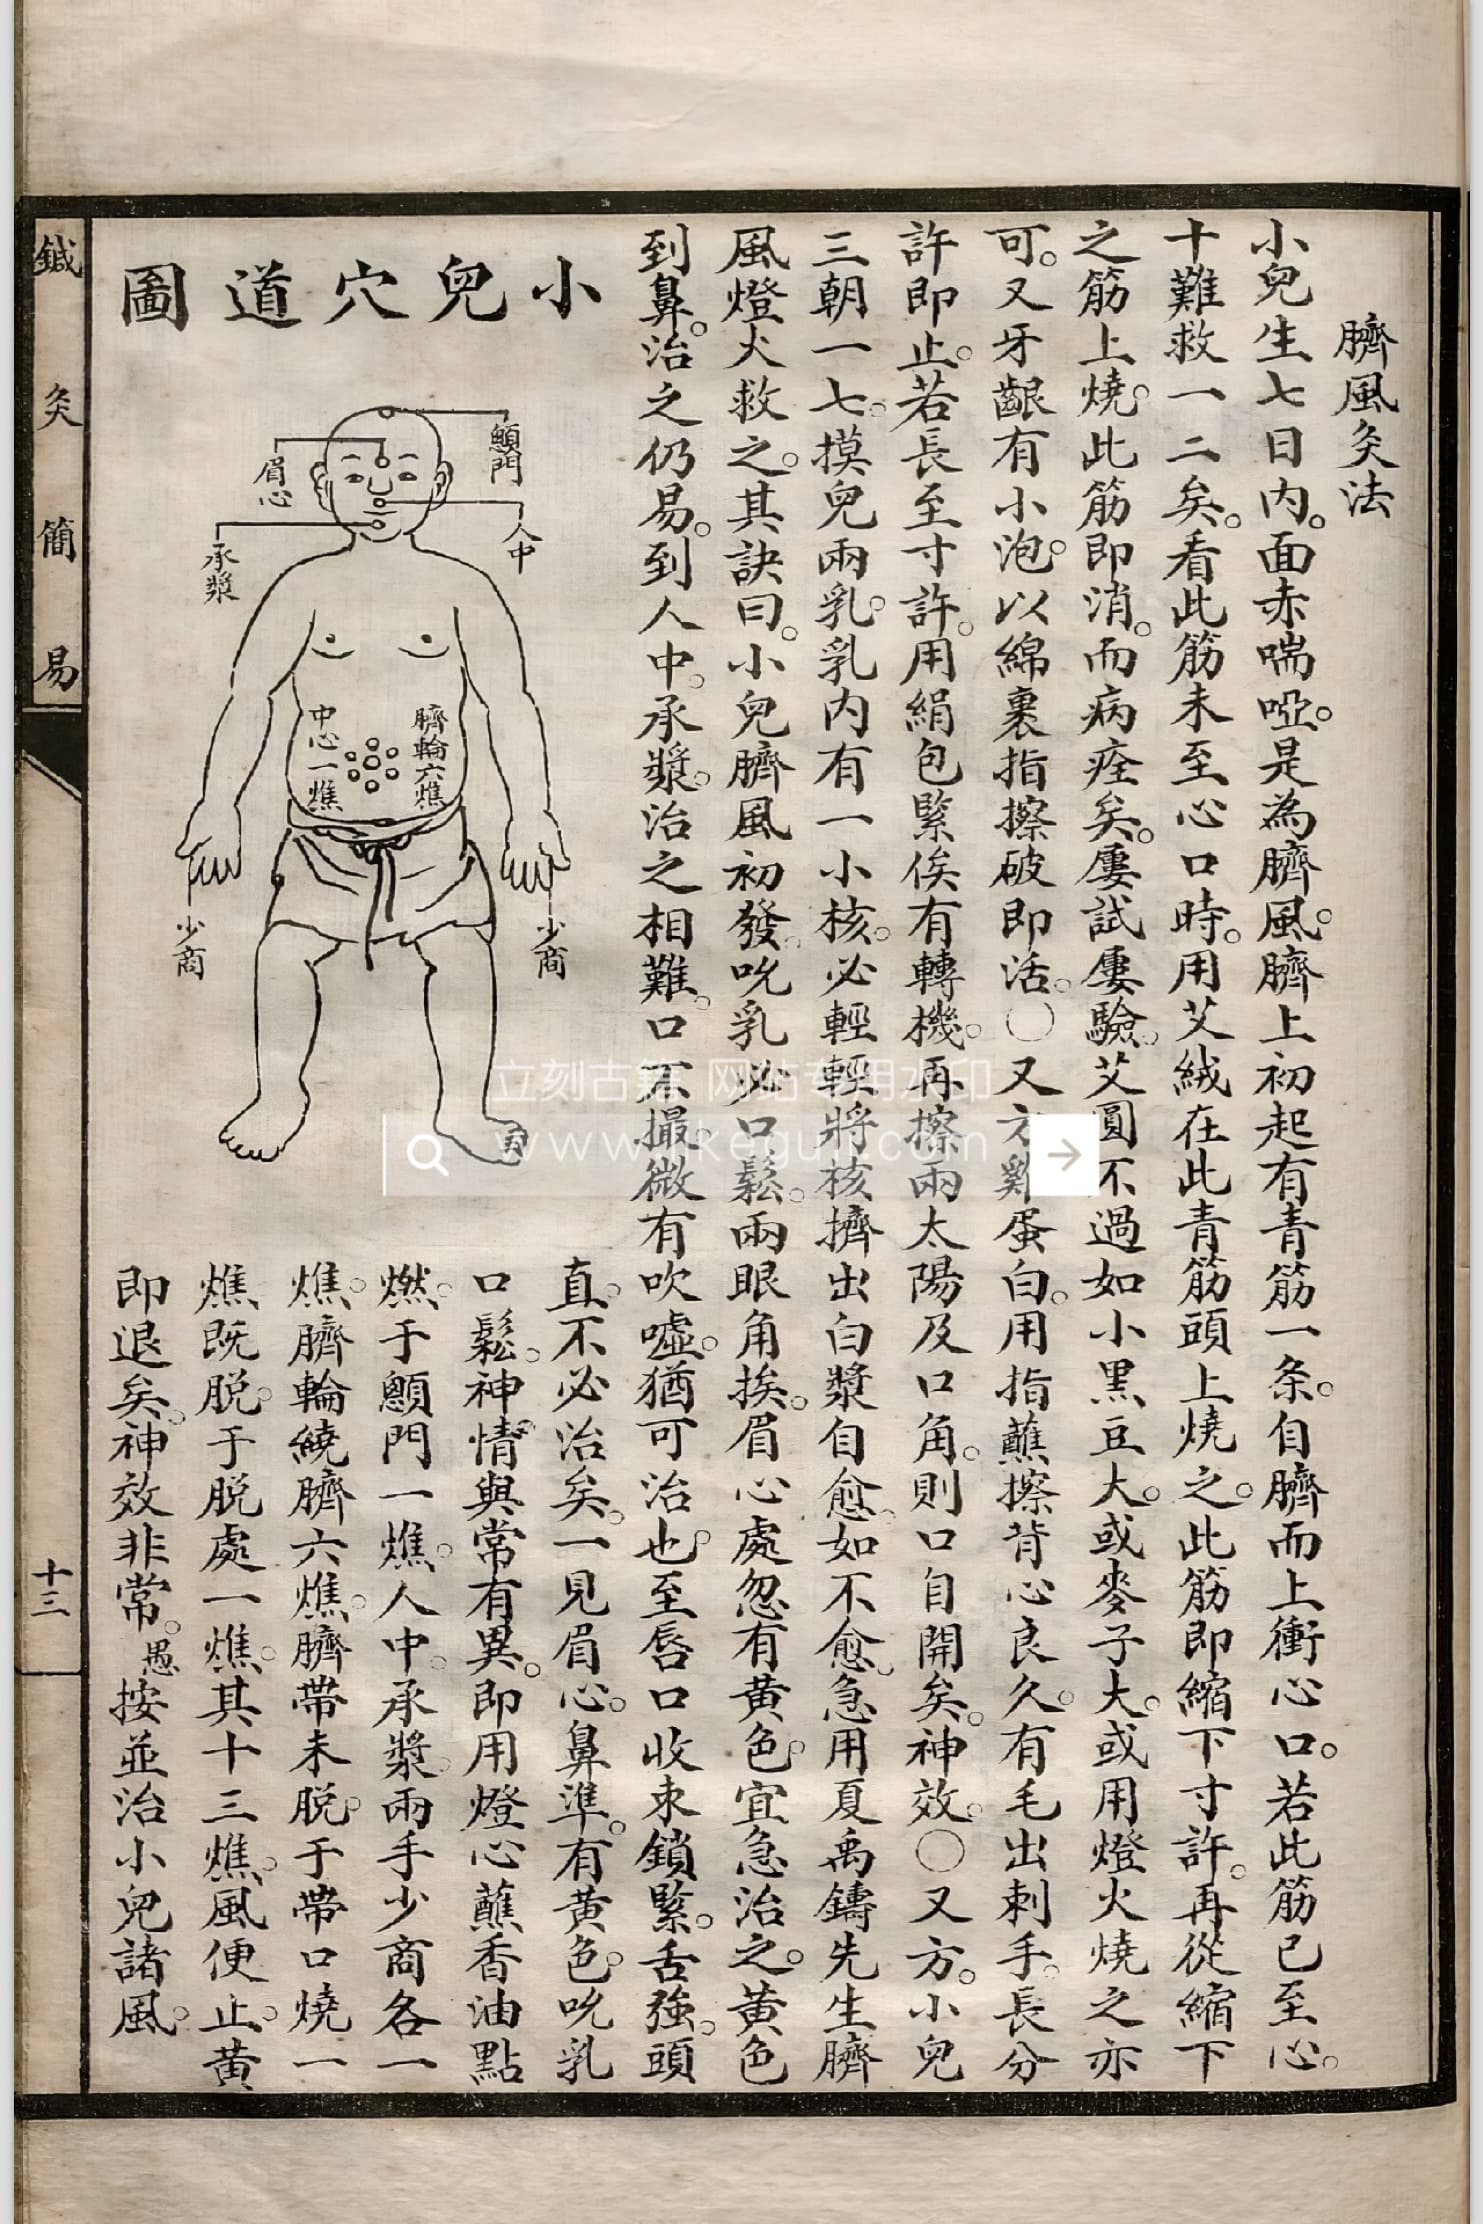 臍風灸法
小兒生七日内。面赤喘啞。是為臍風。臍上初起有青筋一条。自臍而上衝心口。若此筋已至心。
十難救一二矣。看此筋未至心口時。用艾絨在此青筋頭上燒之。此筋即縮下寸許。再從縮下
之筋上燒。此筋即消。而病痊矣。屢試屢驗。艾圓不過如小黑豆大。或麥子大。或用燈火燒之亦
可。又牙齦有小泡。以綿裹指擦破即活。○又方雞蛋白。用指蘸擦背心良久。有毛出刺手。長分
許即止。若長至寸許。用絹包緊俟有轉機。再擦兩太陽及口角。則口自開矣。神效。○又方。小兒
三朝一七。摸兒兩乳。乳内有一小核。必輕輕將核擠出白漿自愈。如不愈。急用夏禹鑄先生臍
風燈火救之。其訣曰。小兒臍風初發。吮乳必口鬆。兩眼角挨。眉心處忽有黄色。宜急治之。黄色
到鼻。治之仍易。到人中。承漿。治之相難。口不撮。微有吹噓。猶可治也。至唇口收束鎖緊。舌強。頭
直。不必治矣。一見眉心。鼻準。有黄色。吮乳
口鬆。神情與常有異。即用燈心蘸香油點
燃。于顖門一燋。人中。承漿。兩手少商各一
燋。臍輪繞臍六燋。臍帶未脱。于帶口燒一
燋既脱。于脱處一燋。其十三燋。風便止。黄
即退矣。神效非常。愚按並治小兒諸風。
小兒穴道圖
顖門
眉心
人中
承漿
臍輪六燋
中心一燋
少商
少商
鍼灸簡易
十三
立刻古籍 网站专用水印
www.likeguji.com